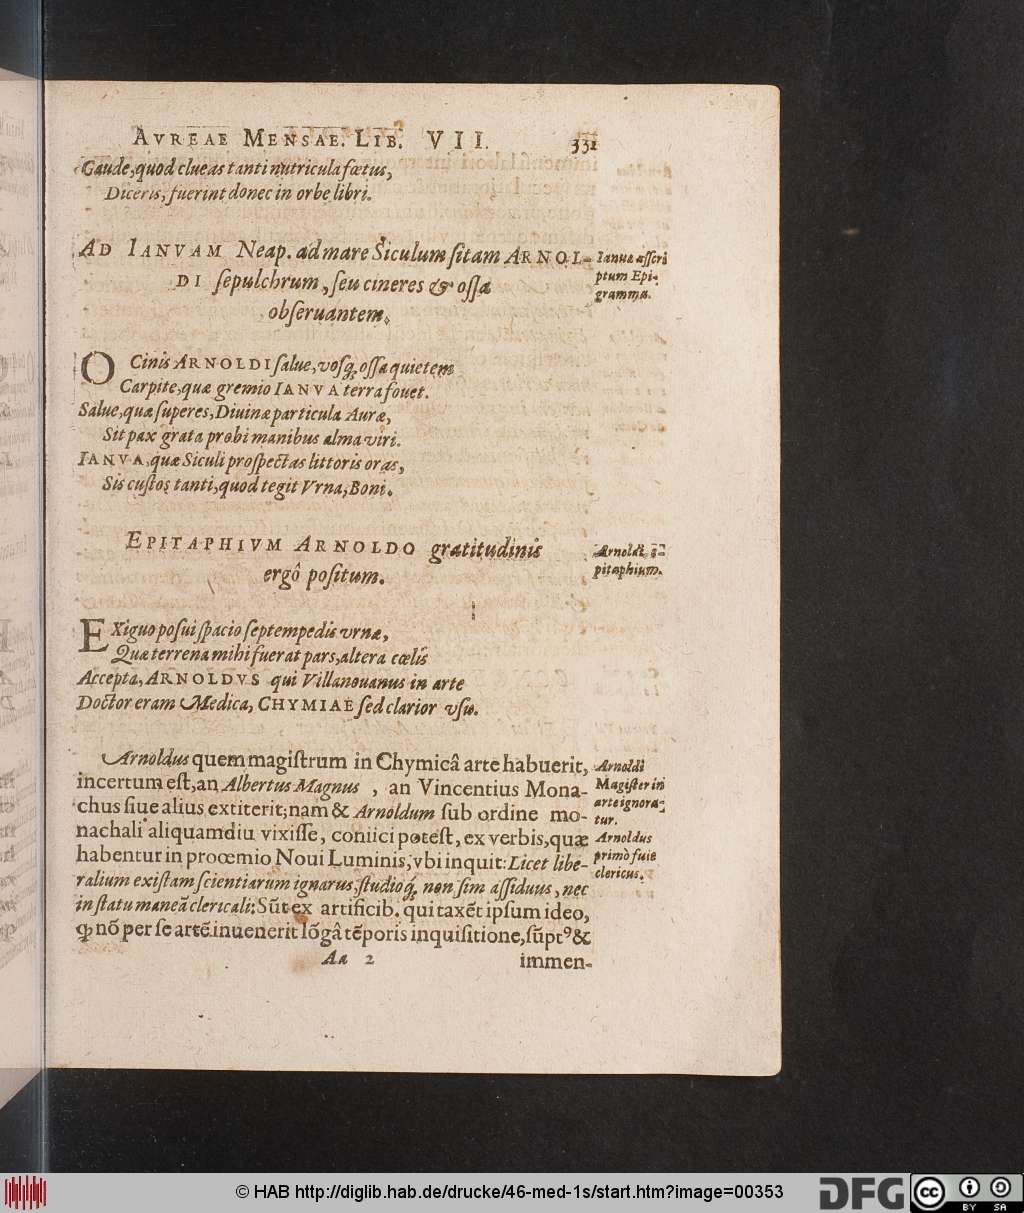 AVREAE MENSAE. LIB. VII. 331
Gaude, quod clueas tanti nutricula fœtus,
Diceris, fuerint donec in orbe libri.
AD IANVAM Neap. ad mare Siculum sitam ARNOL-
DI sepulchrum, seu cineres & ossa
obseruantem.
Ianuæ asscri
ptum Epi-
gramma.
O Cinis ARNOLDI salue, vosq; ossa quietem
Carpite, quæ gremio IANVA terra fouet.
Salue, quæ superes, Diuinæ particula Auræ,
Sit pax grata probi manibus alma viri.
IANVA, quæ Siculi prospectas littoris oras,
Sis custos tanti, quod tegit Vrna, Boni.
EPITAPHIVM ARNOLDO gratitudinis
ergô positum.
Arnoldi E-
pitaphium.
EXiguo posui spacio septempedis vrnæ,
Quæ terrena mihi fuerat pars, altera cœlis
Accepta, ARNOLDVS qui Villanouanus in arte
Doctor eram Medica, CHYMIAE sed clarior vsu.
Arnoldus quem magistrum in Chymicâ arte habuerit,
incertum est, an Albertus Magnus, an Vincentius Mona-
chus siue alius extiterit; nam & Arnoldum sub ordine mo-
nachali aliquamdiu vixisse, coniici potest, ex verbis, quæ
habentur in proœmio Noui Luminis, vbi inquit: Licet libe-
ralium existam scientiarum ignarus, studioq; non sim assiduus, nec
in statu maneā clericali: Sūt ex artificib. qui taxēt ipsum ideo,
ꝙ nō per se artē inuenerit lōgâ tēporis inquisitione, sūptꝰ &
Arnoldi
Magister in
arte ignora-
tur.
Arnoldus
primò fuit
clericus.
Aa 2 immen-
© HAB http://diglib.hab.de/drucke/46-med-1s/start.htm?image=00353
DFG
cc BY SA